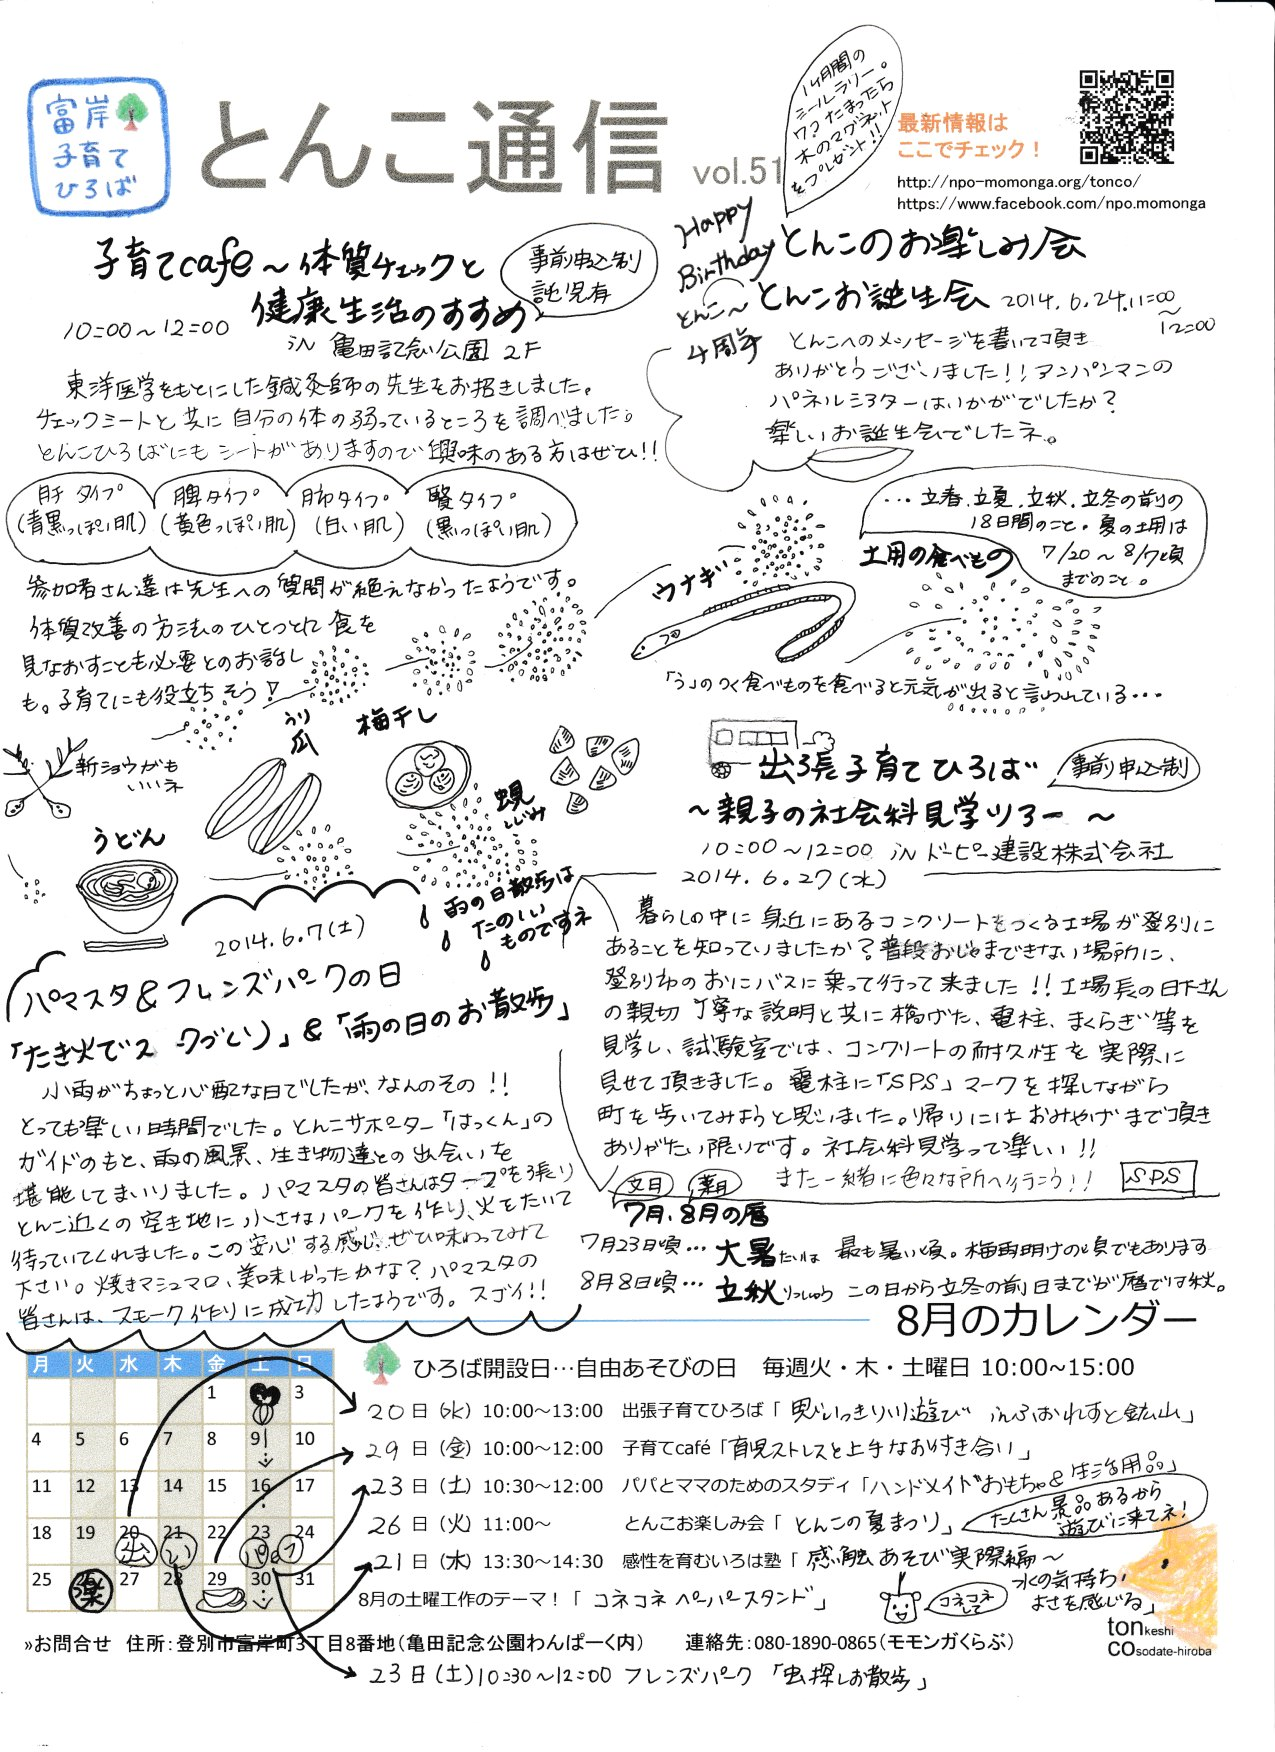 富岸
子育て
ひろば
とんこ通信 vol.51
1ヶ月間の
シールラリー。
7コたまったら
木のマグネット
をプレゼント!!
最新情報は
ここでチェック!
http://npo-momonga.org/tonco/
https://www.facebook.com/npo.momonga
子育てcafe～体質チェックと
健康生活のすすめ
事前申込制
託児有
10:00～12:00
in 亀田記念公園 2F
東洋医学をもとにした鍼灸師の先生をお招きしました。
チェックシートと共に自分の体の弱っているところを調べました。
とんこひろばにもシートがありますので興味のある方はぜひ!!
肝タイプ
(青黒っぽい肌)
脾タイプ
(黄色っぽい肌)
肺タイプ
(白い肌)
腎タイプ
(黒っぽい肌)
参加者さん達は先生への質問が絶えなかったようです。
体質改善の方法のひとつとれ食を
見なおすことも必要とのお話し
も。子育てにも役立ちそう!
Happy
Birthday
とんこ～
4周年
とんこのお楽しみ会
とんこお誕生会 2014.6.24.11:00
～
12:00
とんこへのメッセージを書いて頂き
ありがとうございました!!アンパンマンの
パネルシアターはいかがでしたか?
楽しいお誕生会でしたネ。
…立春.立夏.立秋.立冬の前の
18日間のこと。夏の土用は
7/20～8/7頃
までのこと。
土用の食べもの
ウナギ
「う」のつく食べものを食べると元気が出ると言われている…
新ショウガも
いいネ
うり
瓜
梅干し
蜆
しじみ
うどん
雨の日散歩は
たのしい
ものですネ
出張子育てひろば
事前申込制
～親子の社会科見学ツアー～
10:00～12:00 in ドーピー建設株式会社
2014.6.27(水)
暮らしの中に身近にあるコンクリートをつくる工場が登別に
あることを知っていましたか?普段おじゃまできない場所に、
登別わのおにバスに乗って行って来ました!!工場長の日下さん
の親切丁寧な説明と共に橋げた、電柱、まくらぎ等を
見学し、試験室では、コンクリートの耐久性を実際に
見せて頂きました。電柱に「SPS」マークを探しながら
町を歩いてみようと思いました。帰りにはおみやげまで頂き
ありがたい限りです。社会科見学って楽しい!!
また一緒に色々な所へ行こう!!
SPS
2014.6.7(土)
パマスタ&フレンズパークの日
「たき火でス クづくり」&「雨の日のお散歩」
小雨がちょっと心配な日でしたが、なんのその!!
とっても楽しい時間でした。とんこサポーター「はっくん」の
ガイドのもと、雨の風景、生き物達との出会いを
堪能してまいりました。パマスタの皆さんはタープを張り
とんこ近くの空き地に小さなパークを作り、火をたいて
待っていてくれました。この安心する感じ、ぜひ味わってみて
下さい。焼きマシュマロ、美味しかったかな?パマスタの
皆さんは、スモーク作りに成功したようです。スゴイ!!
文月 葉月
7月.8月の暦
7月23日頃…大暑たいしょ 最も暑い頃。梅雨明けの頃でもあります
8月8日頃…立秋りっしゅう この日から立冬の前日までが暦では秋。
8月のカレンダー
月 火 水 木 金 土 日
1 3
4 5 6 7 8 9 10
11 12 13 14 15 16 17
18 19 20 21 22 23 24
25 26 27 28 29 30 31
出 い パ フ
楽
ひろば開設日…自由あそびの日 毎週火・木・土曜日 10:00~15:00
20日(水) 10:00~13:00 出張子育てひろば「思いっきり川遊び inふぉれすと鉱山」
29日(金) 10:00~12:00 子育てcafé「育児ストレスと上手なおりすき合い」
23日(土) 10:30~12:00 パパとママのためのスタディ「ハンドメイドおもちゃ&生活用品」
26日(火) 11:00~ とんこお楽しみ会「とんこの夏まつり」
たくさん景品あるから
遊びに来てネ!
21日(木) 13:30~14:30 感性を育むいろは塾「感触あそび実際編～
水の気持ち
よさを感じる」
8月の土曜工作のテーマ!「コネコネペーパースタンド」
コネコネ
して
»お問合せ 住所:登別市富岸町3丁目8番地(亀田記念公園わんぱーく内) 連絡先:080-1890-0865(モモンガくらぶ)
tonkeshi
cosodate-hiroba
23日(土)10:30～12:00 フレンズパーク「虫探しお散歩」